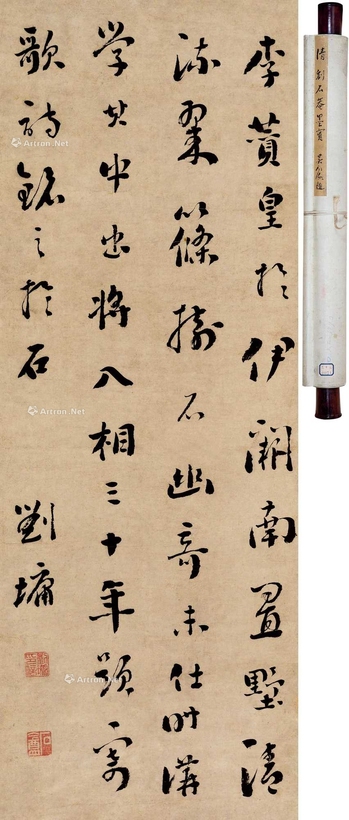 李贊皇於伊闕南置墅清
流翠篠樹石幽奇未仕時講
学其中出將入相三十年題寄
歌詩銘之於石
劉墉
清劉石菴墨寶
Artron.Net
Artron.Net
Artron.Net